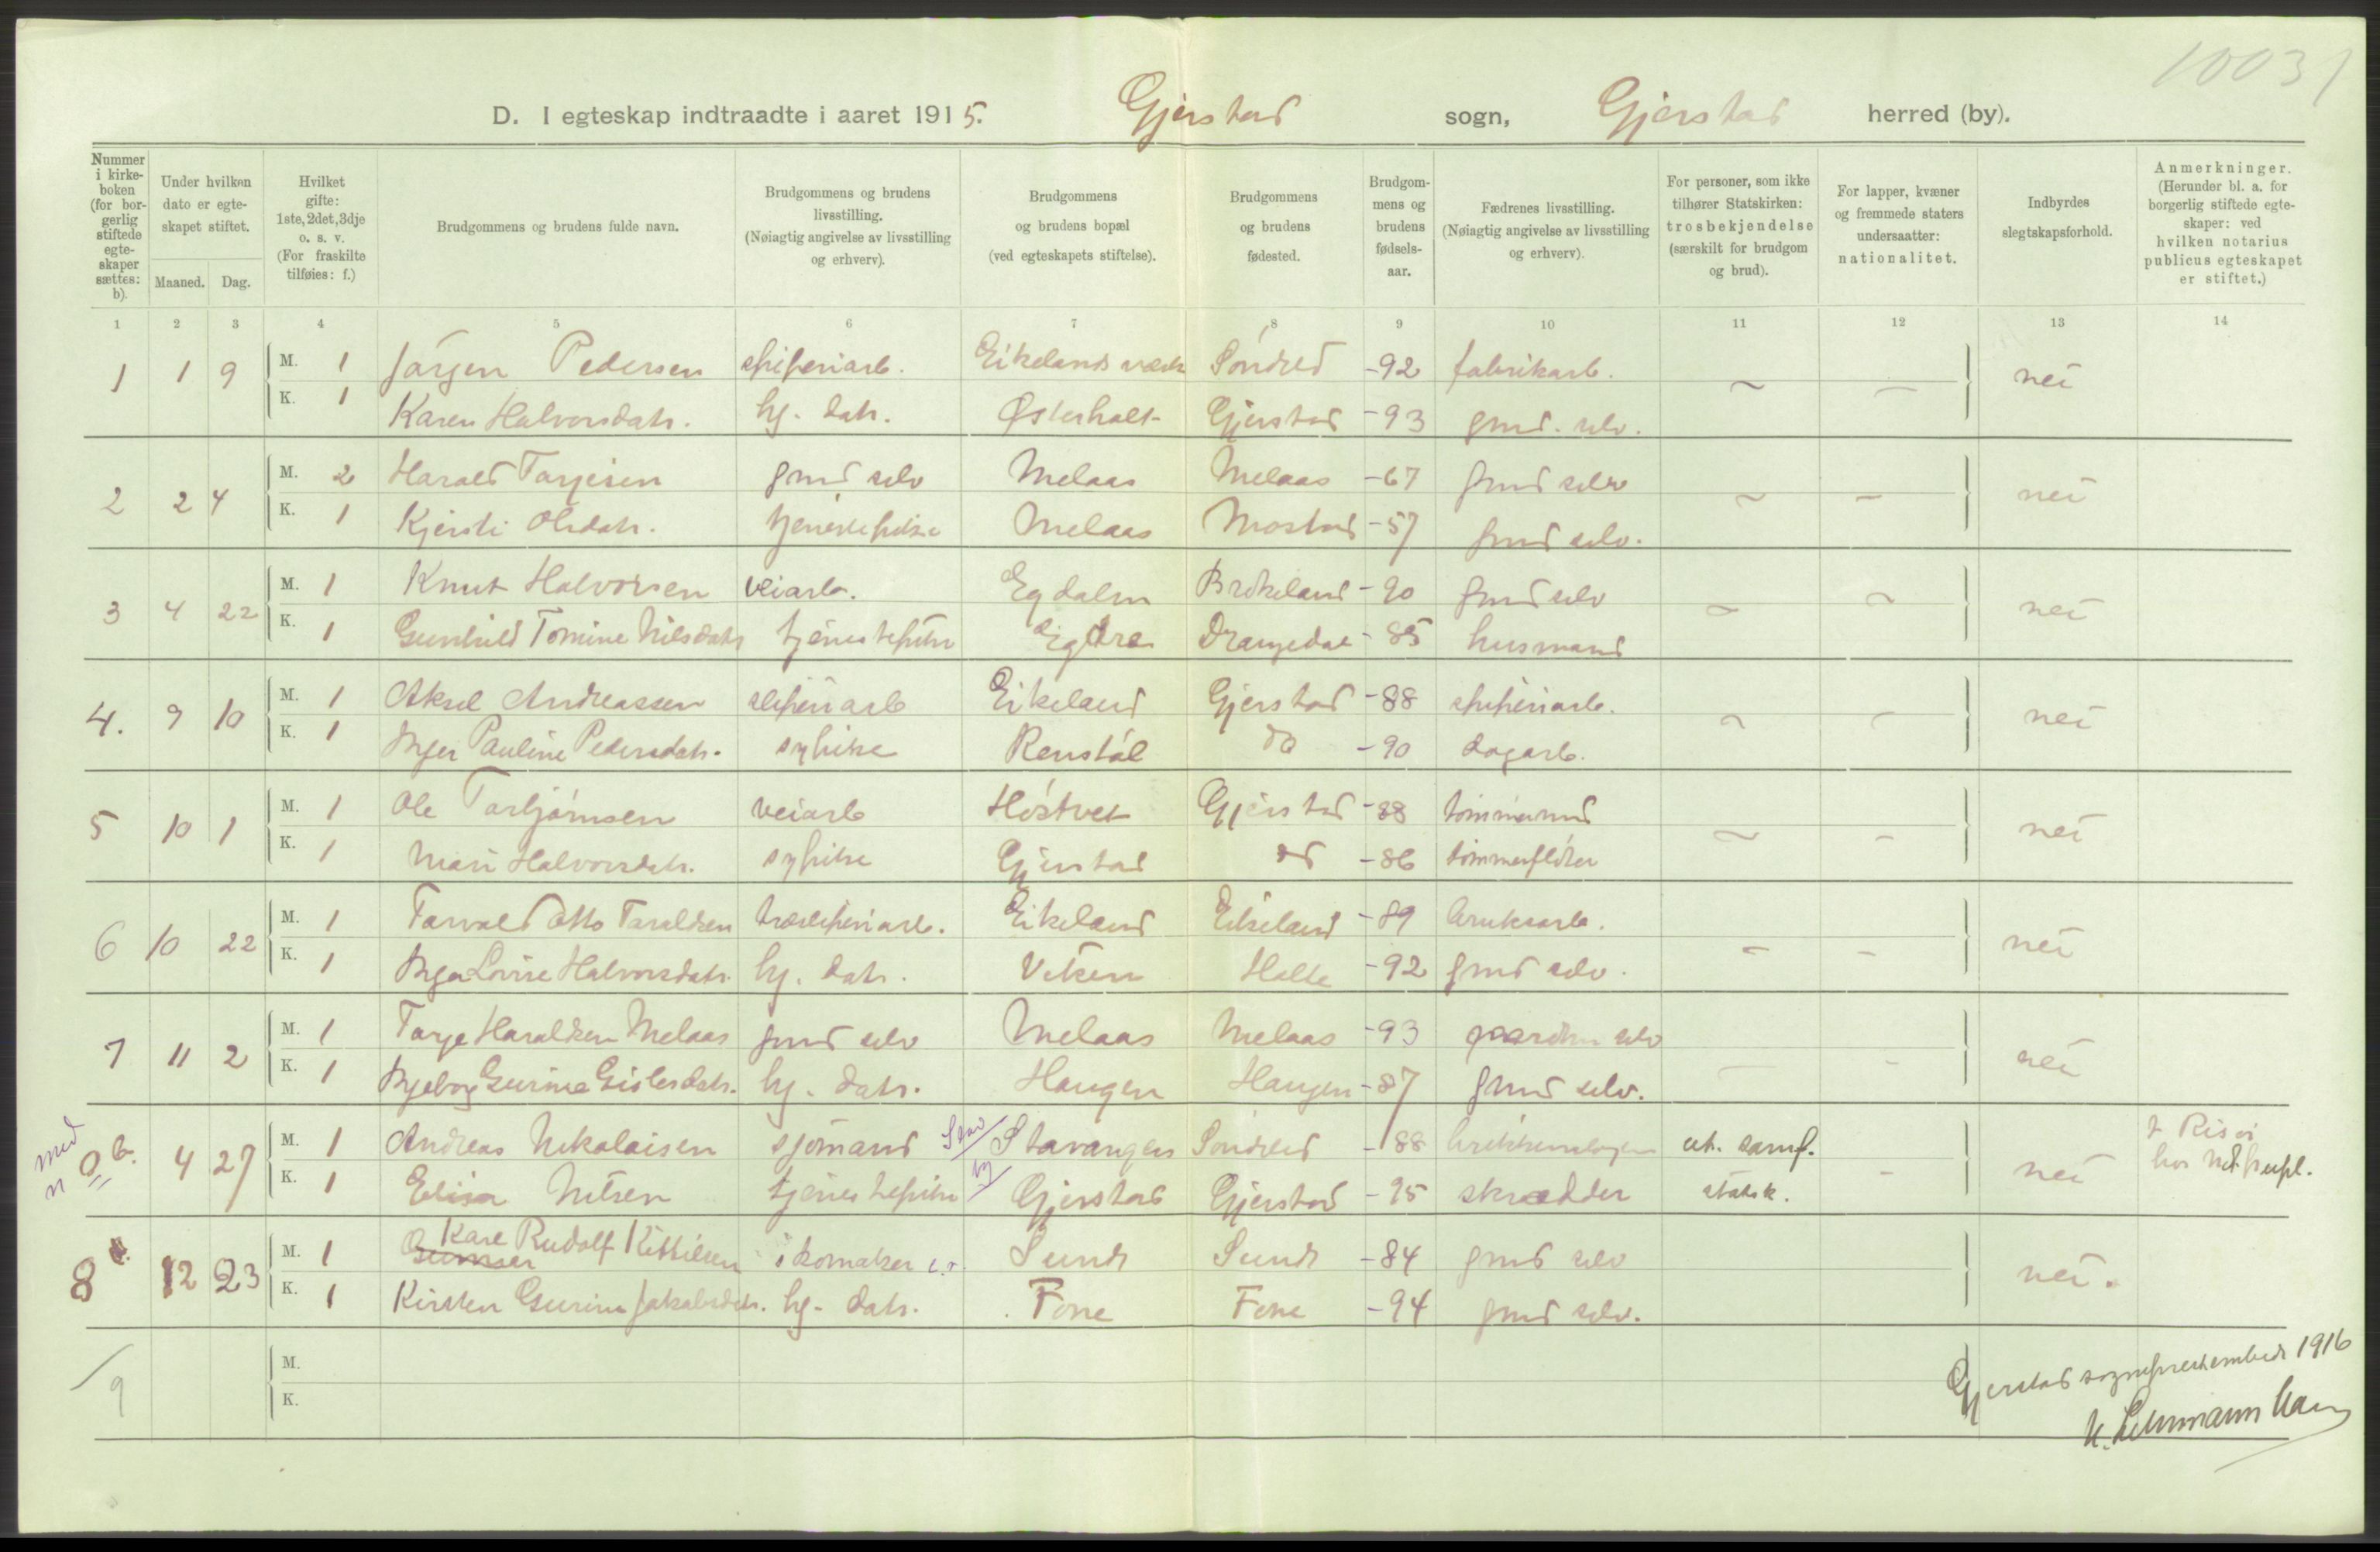 10031
D. I egteskap indtraadte i aaret 1915. Gjerstad sogn, Gjerstad herred (by).
Nummer i kirke-boken (for bor-gerlig stiftede egte-skaper sættes: b).
Under hvilken dato er egte-skapet stiftet.
Maaned. Dag.
Hvilket gifte: 1ste, 2det, 3dje o. s. v. (For fraskilte tilføies: f.)
Brudgommens og brudens fulde navn.
Brudgommens og brudens livsstilling. (Nøiagtig angivelse av livsstilling og erhverv).
Brudgommens og brudens bopæl (ved egteskapets stiftelse).
Brudgommens og brudens fødested.
Brudgom-mens og brudens fødsels-aar.
Fædrenes livsstilling. (Nøiagtig angivelse av livsstilling og erhverv).
For personer, som ikke tilhører Statskirken: trosbekjendelse (særskilt for brudgom og brud).
For lapper, kvæner og fremmede staters undersaatter: nationalitet.
Indbyrdes slegtskapsforhold.
Anmerkninger. (Herunder bl. a. for borgerlig stiftede egte-skaper: ved hvilken notarius publicus egteskapet er stiftet.)
1 2 3 4 5 6 7 8 9 10 11 12 13 14
1 1 9 M. 1 Jørgen Pedersen sliperiarb. Eikelands værk Søndeled -92 fabrikarb. ~ — nei
K. 1 Karen Halvorsdatr. hj. datr. Østerholt Gjerstad -93 grd. selv.
2 2 4 M. 2 Harald Tarjeisen grd selv Melaas Melaas -67 grd selv ~ — nei
K. 1 Kjersti Olsdatr. tjenestepike Melaas Mostad -57 grd selv.
3 4 22 M. 1 Knut Halvorsen veiarb. Egdalen Brøkeland -90 grd selv ~ ~ nei
K. 1 Gunhild Tomine Nilsdatr tjenestepike Egdra Drangedal -85 husmand
4. 9 10 M. 1 Aksel Andreassen sliperiarb Eikeland Gjerstad -88 sliperiarb. ~ – nei
K. 1 Inger Pauline Pedersdatr. sypike Renstøl do -90 dagarb.
5 10 1 M. 1 Ole Torbjørnsen veiarb Høstvet Gjerstad -88 tømmermd ~ – nei
K. 1 Mari Halvorsdatr. sypike Gjerstad do -86 tømmerfløter
6 10 22 M. 1 Torvald Otto Taraldsen træsliperiarb. Eikeland Eikeland -89 bruksarb. – – nei
K. 1 Inga Lovise Halvorsdatr. hj. datr. Viken Holte -92 grd selv.
7 11 2 M. 1 Tarje Haraldsen Melaas grd selv Melaas Melaas -93 gaardm selv — – nei
K. 1 Ingeborg Gurine Gislesdatr. hj. datr. Haugen Haugen -87 grd selv.
med n 0 b. 4 27 M. 1 Andreas Nikolaisen sjømand Stav by Stavanger Søndeled -88 ut. samf. – nei
K. 1 Elisa Nilsen tjenestepike Gjerstad Gjerstad -95 skrædder statsk.
8 12 23 M. 1 Kare Rudolf Kittilsen Sunde Sunde -84 grd selv nei.
K. 1 Kirsten Gurine Jakobsdatr. hj. datr. Fone Fone -94 grd selv.
9 M.
K.
Gjerstad sogneprestembede 1916